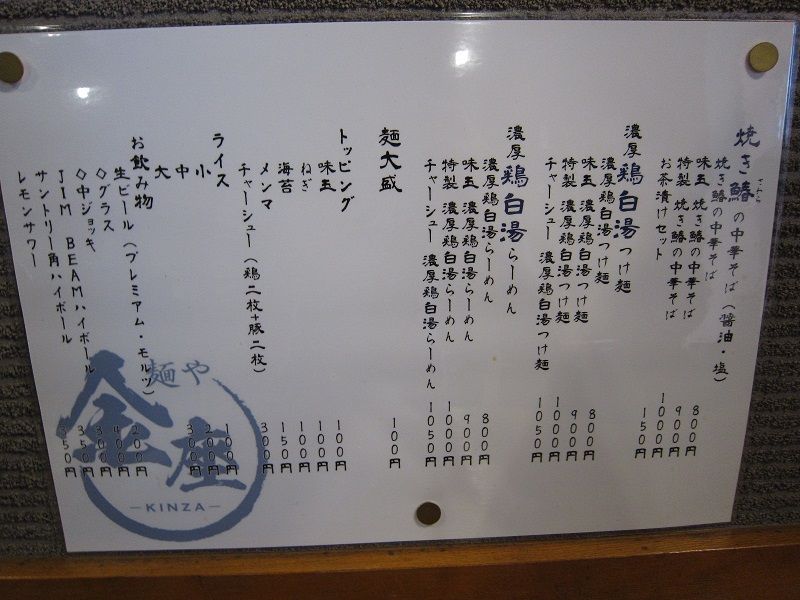 焼き鰆の中華そば（醤油・塩）
さわら
焼き鰆の中華そば 800円
味玉 焼き鰆の中華そば 900円
特製 焼き鰆の中華そば 1000円
お茶漬けセット 150円
濃厚鶏白湯つけ麺
濃厚鶏白湯つけ麺 800円
味玉 濃厚鶏白湯つけ麺 900円
特製 濃厚鶏白湯つけ麺 1000円
チャーシュー 濃厚鶏白湯つけ麺 1050円
濃厚鶏白湯らーめん
濃厚鶏白湯らーめん 800円
味玉 濃厚鶏白湯らーめん 900円
特製 濃厚鶏白湯らーめん 1000円
チャーシュー 濃厚鶏白湯らーめん 1050円
麺大盛 100円
トッピング
味玉 100円
ねぎ 100円
海苔 100円
メンマ 150円
チャーシュー（鶏二枚+豚二枚） 300円
ライス
小 100円
中 200円
大 300円
お飲み物
生ビール（プレミアム・モルツ）
◇グラス 200円
◇中ジョッキ 400円
JIM BEAMハイボール 300円
サントリー角ハイボール 350円
レモンサワー 350円
麺や
金座
-KINZA-